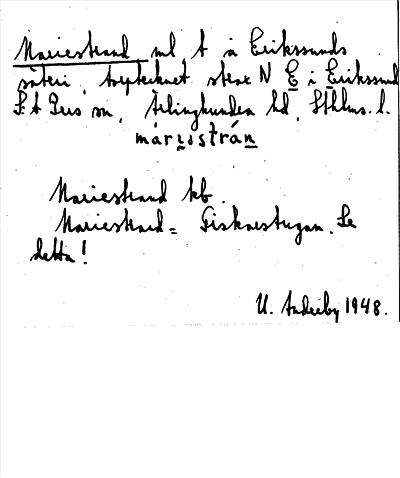 Mariestrand, ml t å Erikssunds
säteri, avstecknat strax N E i Erikssund
S:t Pers sn, Ärlinghundra hd, Sthlms. l.
márɪstrán
Mariestrand kb.
Mariestrand = Fiskarstugan. Se
detta!
U. Anderby 1948.